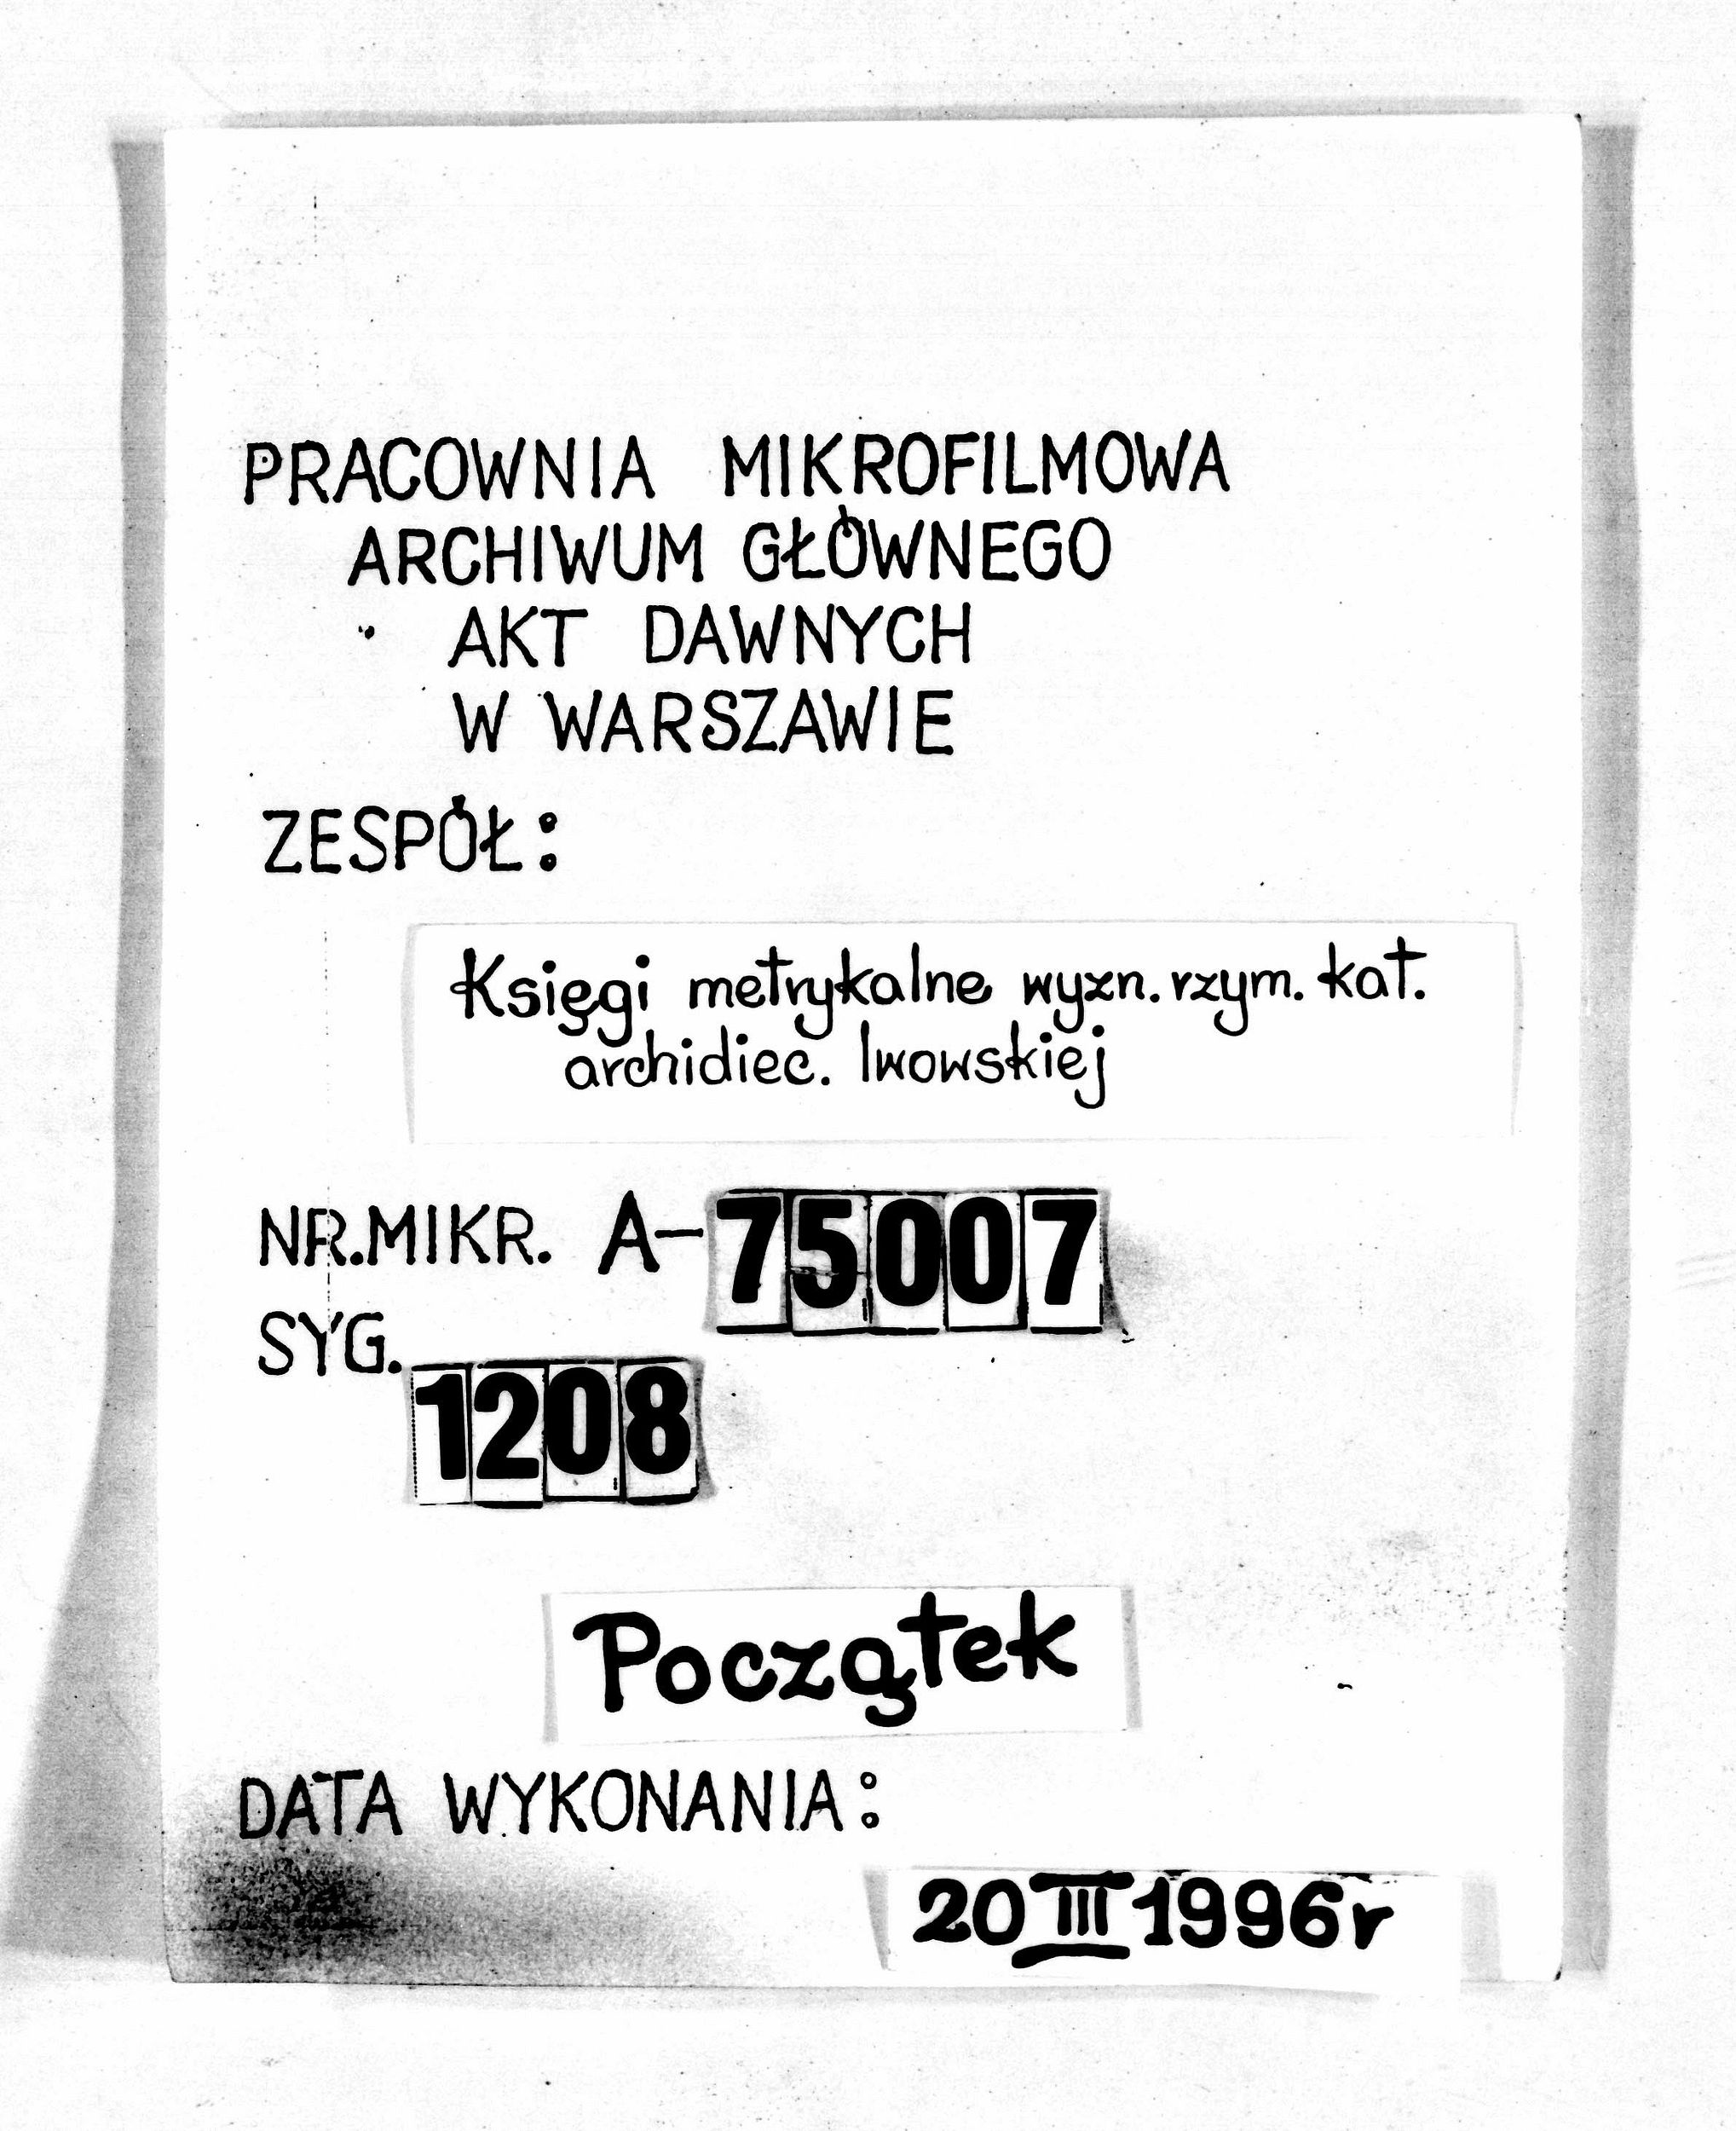 PRACOWNIA MIKROFILMOWA
ARCHIWUM GŁÓWNEGO
AKT DAWNYCH
W WARSZAWIE
ZESPÓŁ:
Księgi metrykalne wyzn. rzym. kat.
archidiec. lwowskiej
NR.MIKR. A-75007
SYG.
1208
Początek
DATA WYKONANIA:
20 III 1996r